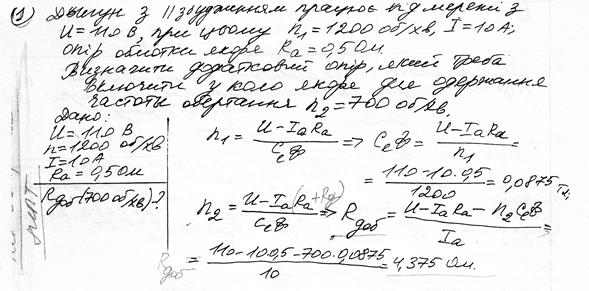 ① Двигун з // збудженням працює від мережі з
U=110 В, при цьому n₁=1200 об/хв, I=10А;
опір обмотки якоря Rа=0,5 Ом.
Визначити додатковий опір, який треба
включити у коло якоря для одержання
частоти обертання n₂=700 об/хв.
Дано:
U=110 В
n=1200 об/хв
I=10А
Rа=0,5 Ом
Rдоб(700 об/хв)-?
n₁ = (U-IаRа)/(CеФ) => CеФ = (U-IаRа)/n₁ =
= (110-10·0,5)/1200 = 0,0875
n₂ = (U-Iа(Rа+Rд))/(CеФ) => Rдоб = (U-IаRа-n₂CеФ)/Iа =
Rдоб = (110-10·0,5-700·0,0875)/10 = 4,375 Ом.